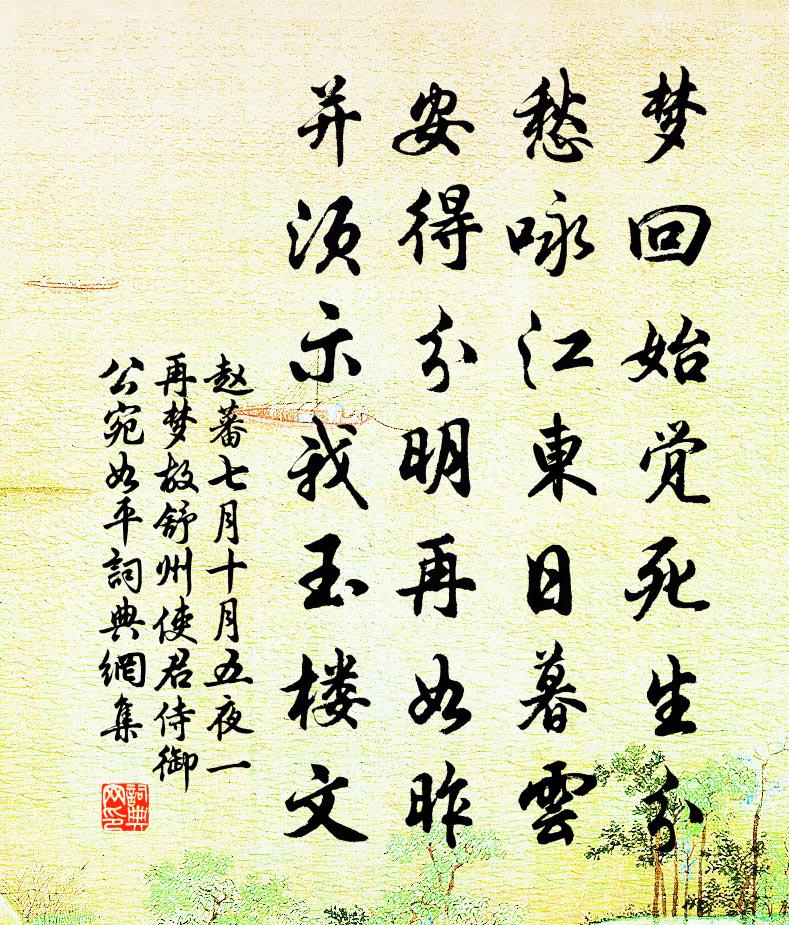 梦回始觉死生分
愁咏江東日暮雲
安得分明再如昨
并须示我玉楼文
赵蕃七月十月五夜一
再梦故舒州使君侍御
公宛如平詞典網集
詞典
网印